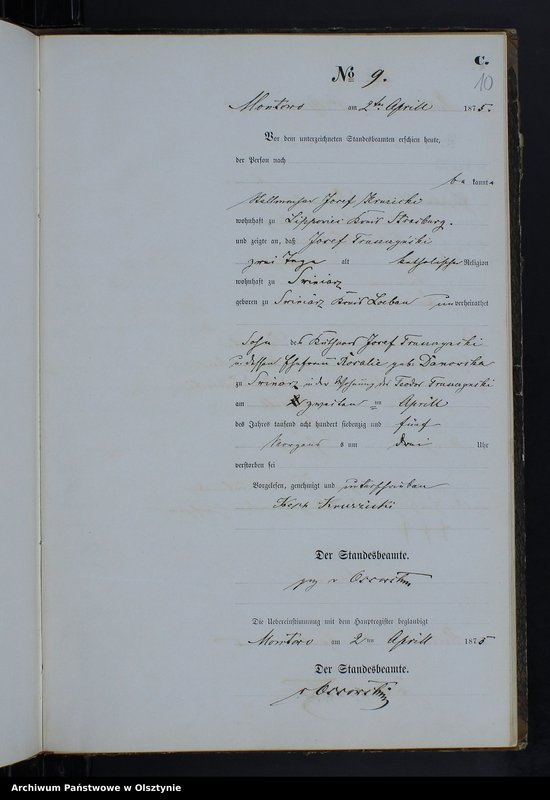 C.
10
No 9.
Montowo am 2ten Aprill 1875.
Vor dem unterzeichneten Standesbeamten erschien heute,
der Person nach
be kannt
Josef Kruzicki
wohnhaft zu Lippowiec Kreis Strasburg.
und zeigte an, daß Josef
zwei Tage alt katholischer Religion
wohnhaft zu Swiniarz
geboren zu Swiniarz Kreis Loebau unverheirathet
Sohn des Josef
u dessen Ehefrau Rosalie geb. Danowska
zu Swiniarz in der Wohnung des Teodor
am zweiten ten Aprill
des Jahres tausend acht hundert siebenzig und fünf
Morgens s um drei Uhr
verstorben sei
Vorgelesen, genehmigt und unterschrieben
Kruzicki
Der Standesbeamte.
gez v Ossowski
Die Uebereinstimmung mit dem Hauptregister beglaubigt
Montowo am 2ten Aprill 1875
Der Standesbeamte.
v Ossowski
Archiwum Państwowe w Olsztynie